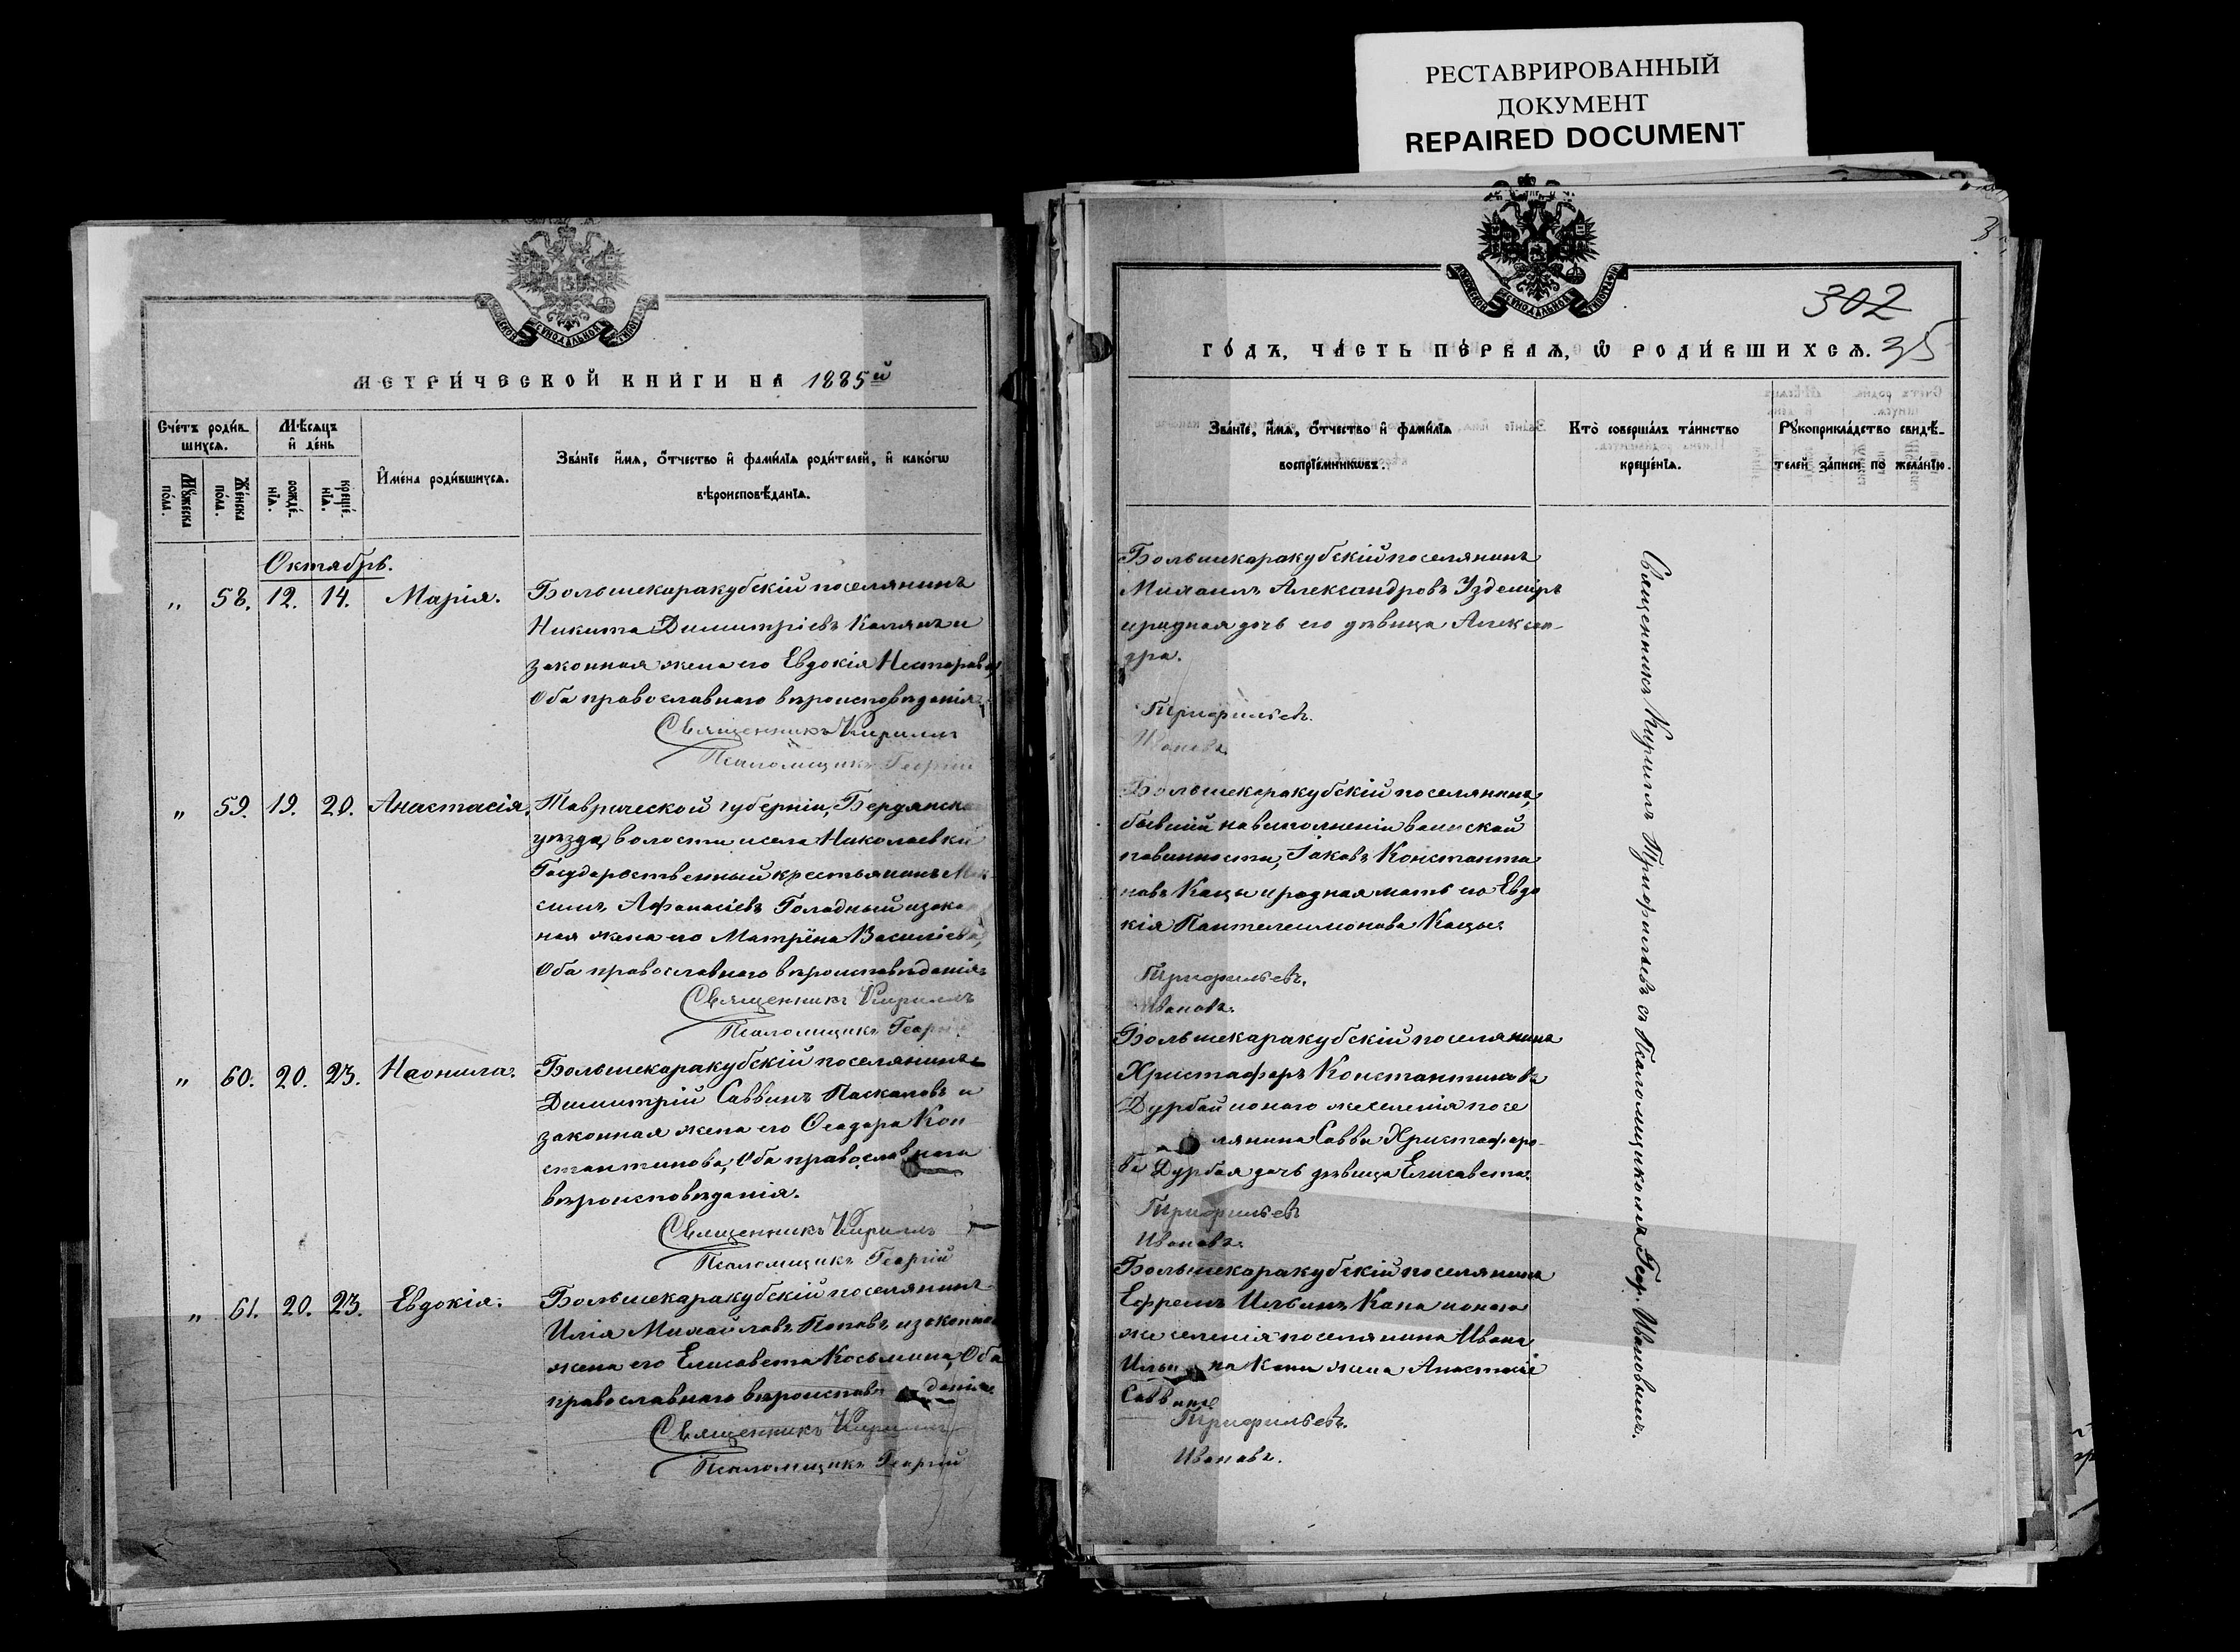 РЕСТАВРИРОВАННЫЙ
ДОКУМЕНТ
REPAIRED DOCUMENT
МЕТРИ́ЧЕСКОЙ КНИ́ГИ НА 1885й
Сче́тъ роди́в-
шихсѧ.
Мѣ́сѧцъ
и҆ де́нь
Мꙋ́жеска
по́ла.
Же́нска
по́ла.
рожде́-
нїѧ.
креще́-
нїѧ.
И҆мена̀ роди́вшихсѧ.
Зва́нїе и҆́мѧ, ѻ҆́тчество и҆ фами́лїѧ роди́телей, и҆ како́гѡ
вѣроисповѣ́данїѧ.
Октябрь.
„ 58. 12. 14. Марія.
Большекаракубскій поселянинъ
Никита Димитріевъ Калянъ и
законная жена его Евдокія Несторова,
Оба православнаго вѣроисповѣданія.
Священникъ Кириллъ
Псаломщикъ Георгій
„ 59. 19. 20. Анастасія.
Таврической губерніи, Бердянска
уѣзда, волости и села Николаевки
Государственный крестьянинъ Мак
симъ Аѳанасіевъ Голодный и зако
ная жена его Матрёна Василіева,
Оба православнаго вѣроисповѣданія.
Священникъ Кириллъ
Псаломщикъ Георгій
„ 60. 20. 23. Неонила.
Большекаракубскій поселянинъ
Димитрій Саввинъ Паскаловъ и
законная жена его Ѳеодора Кон
стантинова, Оба православнаго
вѣроисповѣданія.
Священникъ Кириллъ
Псаломщикъ Георгій
„ 61. 20. 23. Евдокія.
Большекаракубскій поселянинъ
Илія Михайловъ Поповъ и законная
жена его Елисавета Косьмина, Оба
православнаго вѣроисповѣданія.
Священникъ Кириллъ
Псаломщикъ Георгій
302
ГО́ДЪ, ЧА́СТЬ ПЕ́РВАѦ, Ѽ РОДИ́ВШИХСѦ. 35
Зва́нїе, и҆́мѧ, ѻ҆́тчество и҆ фами́лїѧ
воспрїе́мникѡвъ.
Кто̀ соверша́лъ та́инство
креще́нїѧ.
Рꙋкоприкла́дство свидѣ́-
телей за́писи по жела́нїю.
Большекаракубскій поселянинъ
Михаилъ Александровъ Уздемиръ
и родная дочь его дѣвица Алексан-
дра.
Трифильевъ.
Ивановъ.
Большекаракубскій поселянинъ,
бывшій на выполненіи воинской
повинности, Іаковъ Константи
новъ Кацы и родная мать его Евдо
кія Пантелеимонова Кацы.
Трифильевъ.
Ивановъ.
Большекаракубскій поселянинъ
Христофоръ Константиновъ
Дурбай и онаго же селенія посе
лянина Савва Христофоро-
ва Дурбая дочь дѣвица Елисавета.
Трифильевъ
Ивановъ.
Большекаракубскій поселянинъ
Ефремъ Ильинъ Капа и онаго
же селенія поселянина Ивана
Ильина Капы жена Анастасія
Саввина
Трифильевъ.
Ивановъ.
Священникъ Кириллъ Трифильевъ съ Псаломщикомъ Геор. Ивановымъ.